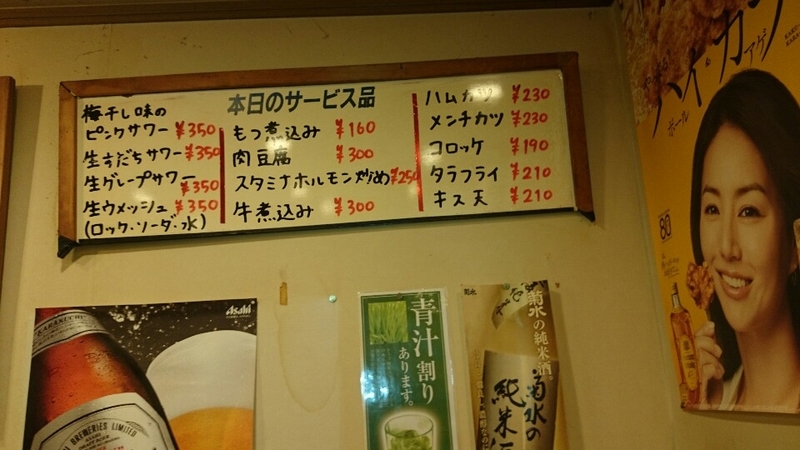 本日のサービス品
梅干し味の
ピンクサワー ¥350
生すだちサワー ¥350
生グレープサワー ¥350
生ウメッシュ ¥350
(ロック・ソーダ・水)
もつ煮込み ¥160
肉豆腐 ¥300
スタミナホルモン炒め ¥250
牛煮込み ¥300
ハムカツ ¥230
メンチカツ ¥230
コロッケ ¥190
タラフライ ¥210
キス天 ¥210
Asahi
KARAKUCHI
BREWERIES LIMITED
青汁割り
あります。
菊水
菊水の純米酒。
菊水の
純米
ハイ
カラ
ボール
アゲ
80